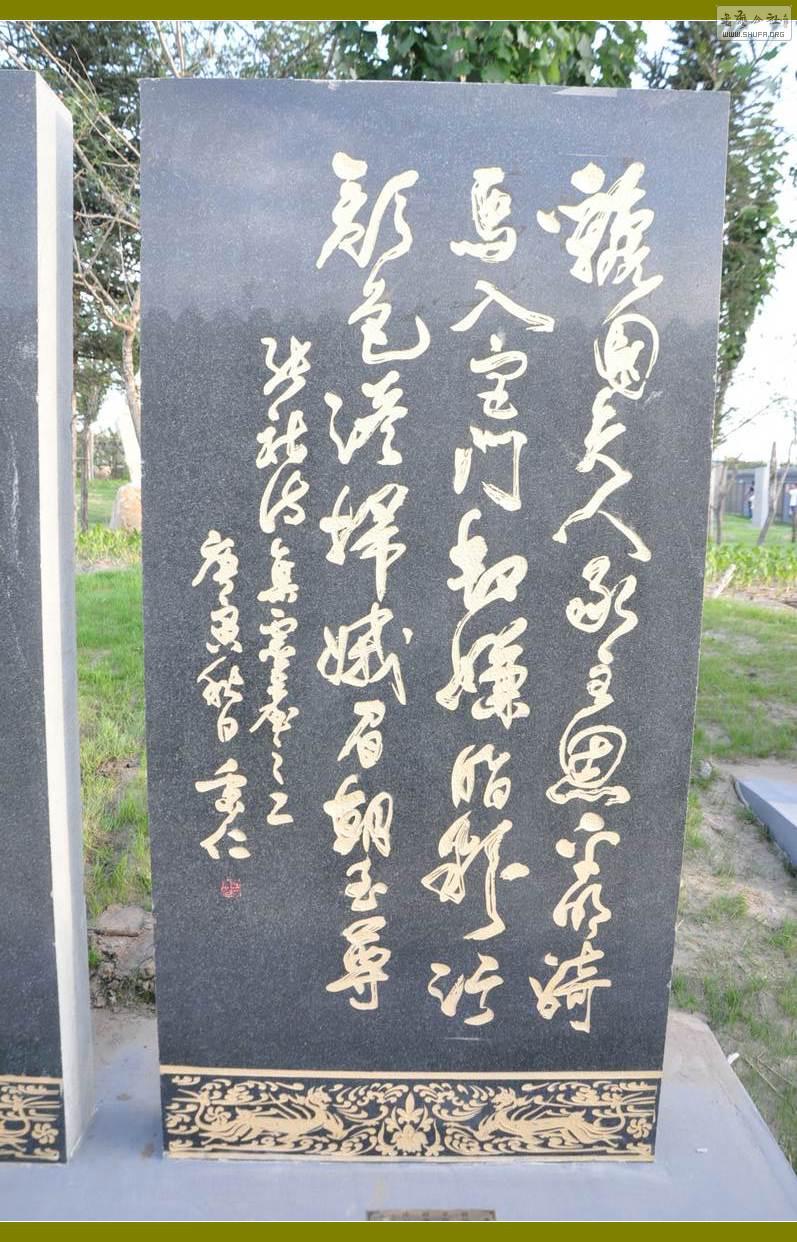 書法公社
WWW.SHUFA.ORG
虢國夫人承主恩平明騎
馬入宮門却嫌脂粉污
顏色淡掃娥眉朝至尊
張祜詩集靈臺之二
庚寅秋日